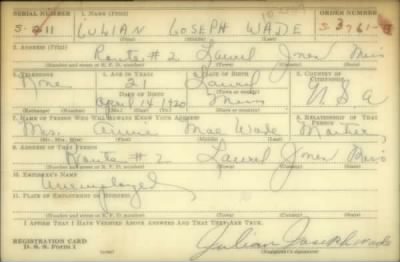 SERIAL NUMBER 1. NAME (Print) ORDER NUMBER
S-211 JULIAN JOSEPH WADE S 3761-B
(First) (Middle) (Last)
2. ADDRESS (Print)
Route #2 Laurel Jones Miss
(Number and street or R. F. D. number) (Town) (County) (State)
3. TELEPHONE 4. AGE IN YEARS 5. PLACE OF BIRTH 6. COUNTRY OF CITIZENSHIP
None 21 Laurel
DATE OF BIRTH (Town or county)
April 14 1920 Miss U.S.A
(Exchange) (Number) (Mo.) (Day) (Yr.) (State or country)
7. NAME OF PERSON WHO WILL ALWAYS KNOW YOUR ADDRESS 8. RELATIONSHIP OF THAT PERSON
Mrs. Annie Mae Wade Mother
(Mr., Mrs., Miss) (First) (Middle) (Last)
9. ADDRESS OF THAT PERSON
Route #2 Laurel Jones Miss
(Number and street or R. F. D. number) (Town) (County) (State)
10. EMPLOYER'S NAME
Unemployed
11. PLACE OF EMPLOYMENT OR BUSINESS
(Number and street or R. F. D. number) (Town) (County) (State)
I AFFIRM THAT I HAVE VERIFIED ABOVE ANSWERS AND THAT THEY ARE TRUE.
REGISTRATION CARD
D. S. S. Form 1 Julian Joseph Wade
(Registrant's signature)